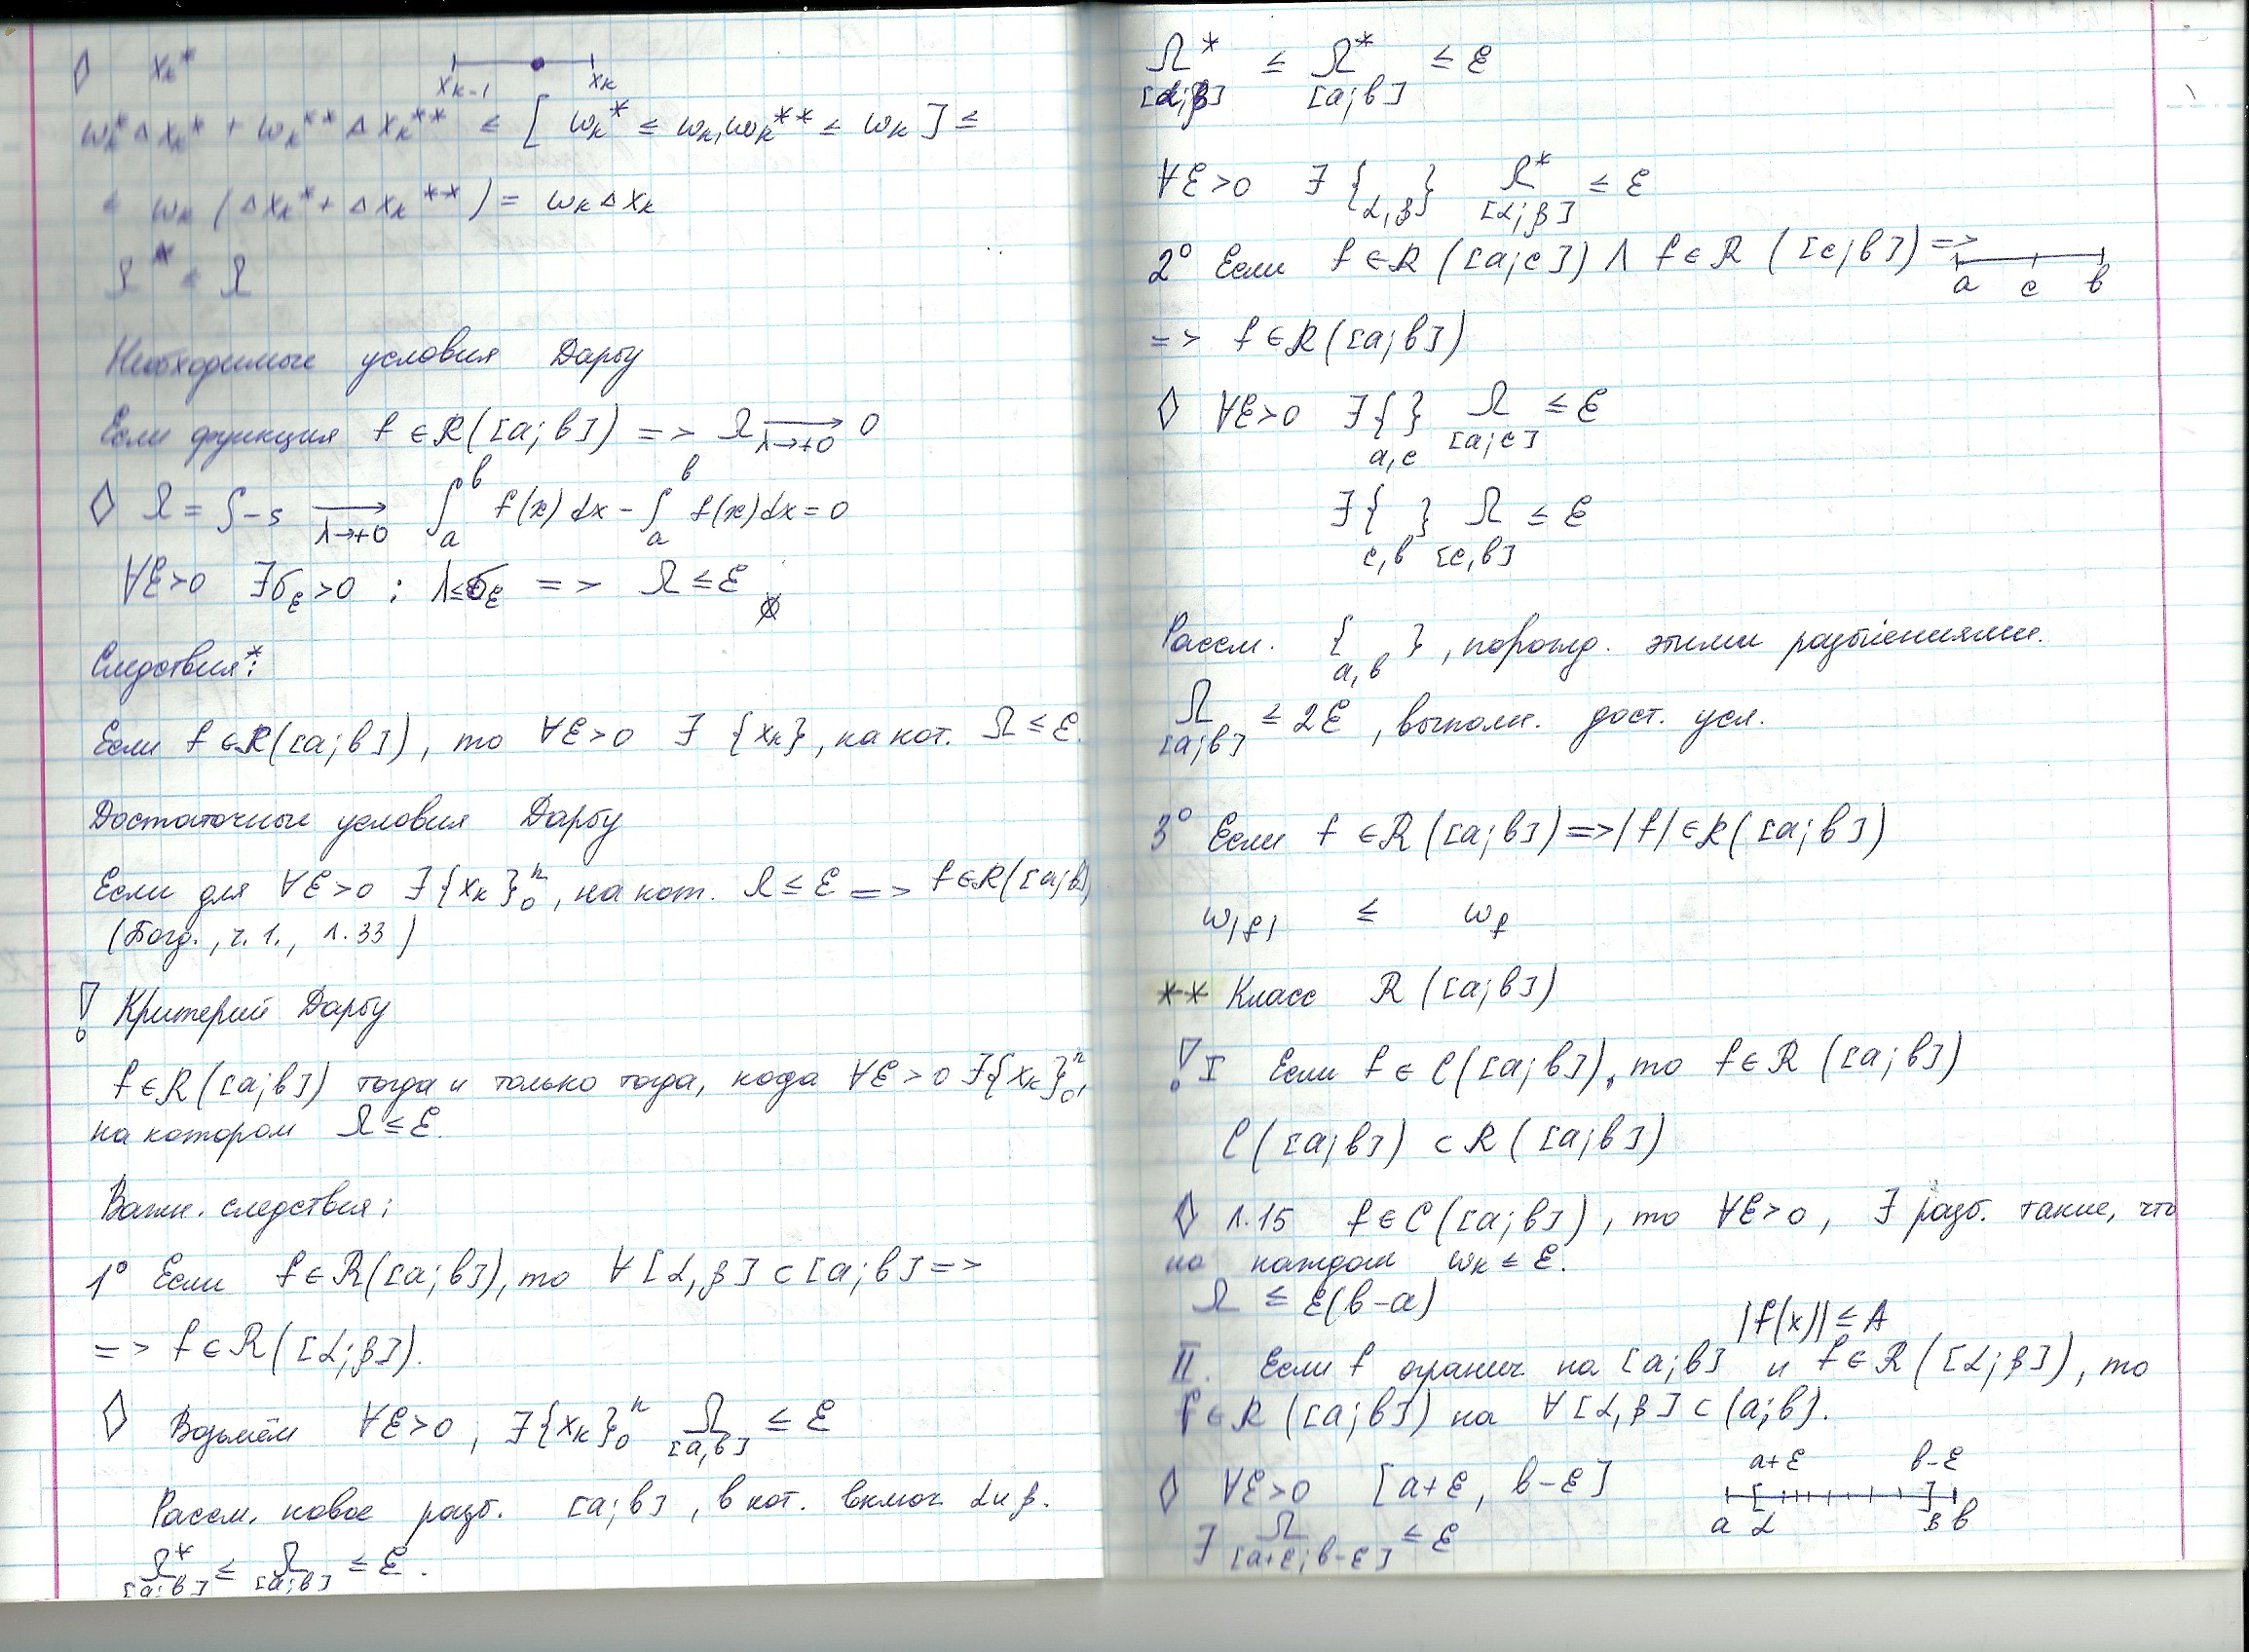 ◊ xₖ*
xₖ₋₁ xₖ
ωₖ*Δxₖ* + ωₖ**Δxₖ** ≤ [ ωₖ* ≤ ωₖ, ωₖ** ≤ ωₖ ] ≤
≤ ωₖ (Δxₖ* + Δxₖ**) = ωₖΔxₖ
Ω* ≤ Ω
Необходимые условия Дарбу
Если функция f ∈ R([a;b]) => Ω →(λ→+0) 0
◊ Ω = S-s →(λ→+0) ∫ₐᵇ f(x)dx - ∫ₐᵇ f(x)dx = 0
∀ε>0 ∃σ_ε>0 : λ≤σ_ε => Ω ≤ ε
Следствия*:
Если f ∈ R([a;b]), то ∀ε>0 ∃ {xₖ}, на кот. Ω ≤ ε.
Достаточные условия Дарбу
Если для ∀ε>0 ∃{xₖ}₀ⁿ, на кот. Ω ≤ ε => f∈R([a;b])
(Богд., ч.1., л.33)
! Критерий Дарбу
f∈R([a;b]) тогда и только тогда, когда ∀ε>0 ∃{xₖ}₀ⁿ,
на котором Ω ≤ ε.
Важн. следствия:
1° Если f∈R([a;b]), то ∀[α,β] ⊂ [a;b] =>
=> f∈R([α;β]).
◊ Возьмём ∀ε>0, ∃{xₖ}₀ⁿ Ω[a,b] ≤ ε
Рассм. новое разб. [a;b], в кот. включ. α и β.
Ω*[a;b] ≤ Ω[a;b] ≤ ε.
Ω*[α;β] ≤ Ω*[a;b] ≤ ε
∀ε>0 ∃{ }α,β Ω*[α;β] ≤ ε
2° Если f∈R([a;c]) ∧ f∈R([c;b]) =>
a c b
=> f∈R([a;b])
◊ ∀ε>0 ∃{ }a,c Ω[a;c] ≤ ε
∃{ }c,b Ω[c,b] ≤ ε
Рассм. { }a,b, порожд. этими разбиениями.
Ω[a;b] ≤ 2ε, выполн. дост. усл.
3° Если f∈R([a;b]) => |f|∈R([a;b])
ω|f| ≤ ωf
** Класс R([a;b])
! I Если f∈C([a;b]), то f∈R([a;b])
C([a;b]) ⊂ R([a;b])
◊ л.15 f∈C([a;b]), то ∀ε>0, ∃ разб. такие, что
на каждом ωₖ ≤ ε.
Ω ≤ ε(b-a)
|f(x)| ≤ A
II. Если f огранич на [a;b] и f∈R([α;β]), то
f∈R([a;b]) на ∀[α,β] ⊂ (a;b).
◊ ∀ε>0 [a+ε, b-ε]
a+ε b-ε
a α β b
∃ Ω[a+ε;b-ε] ≤ ε